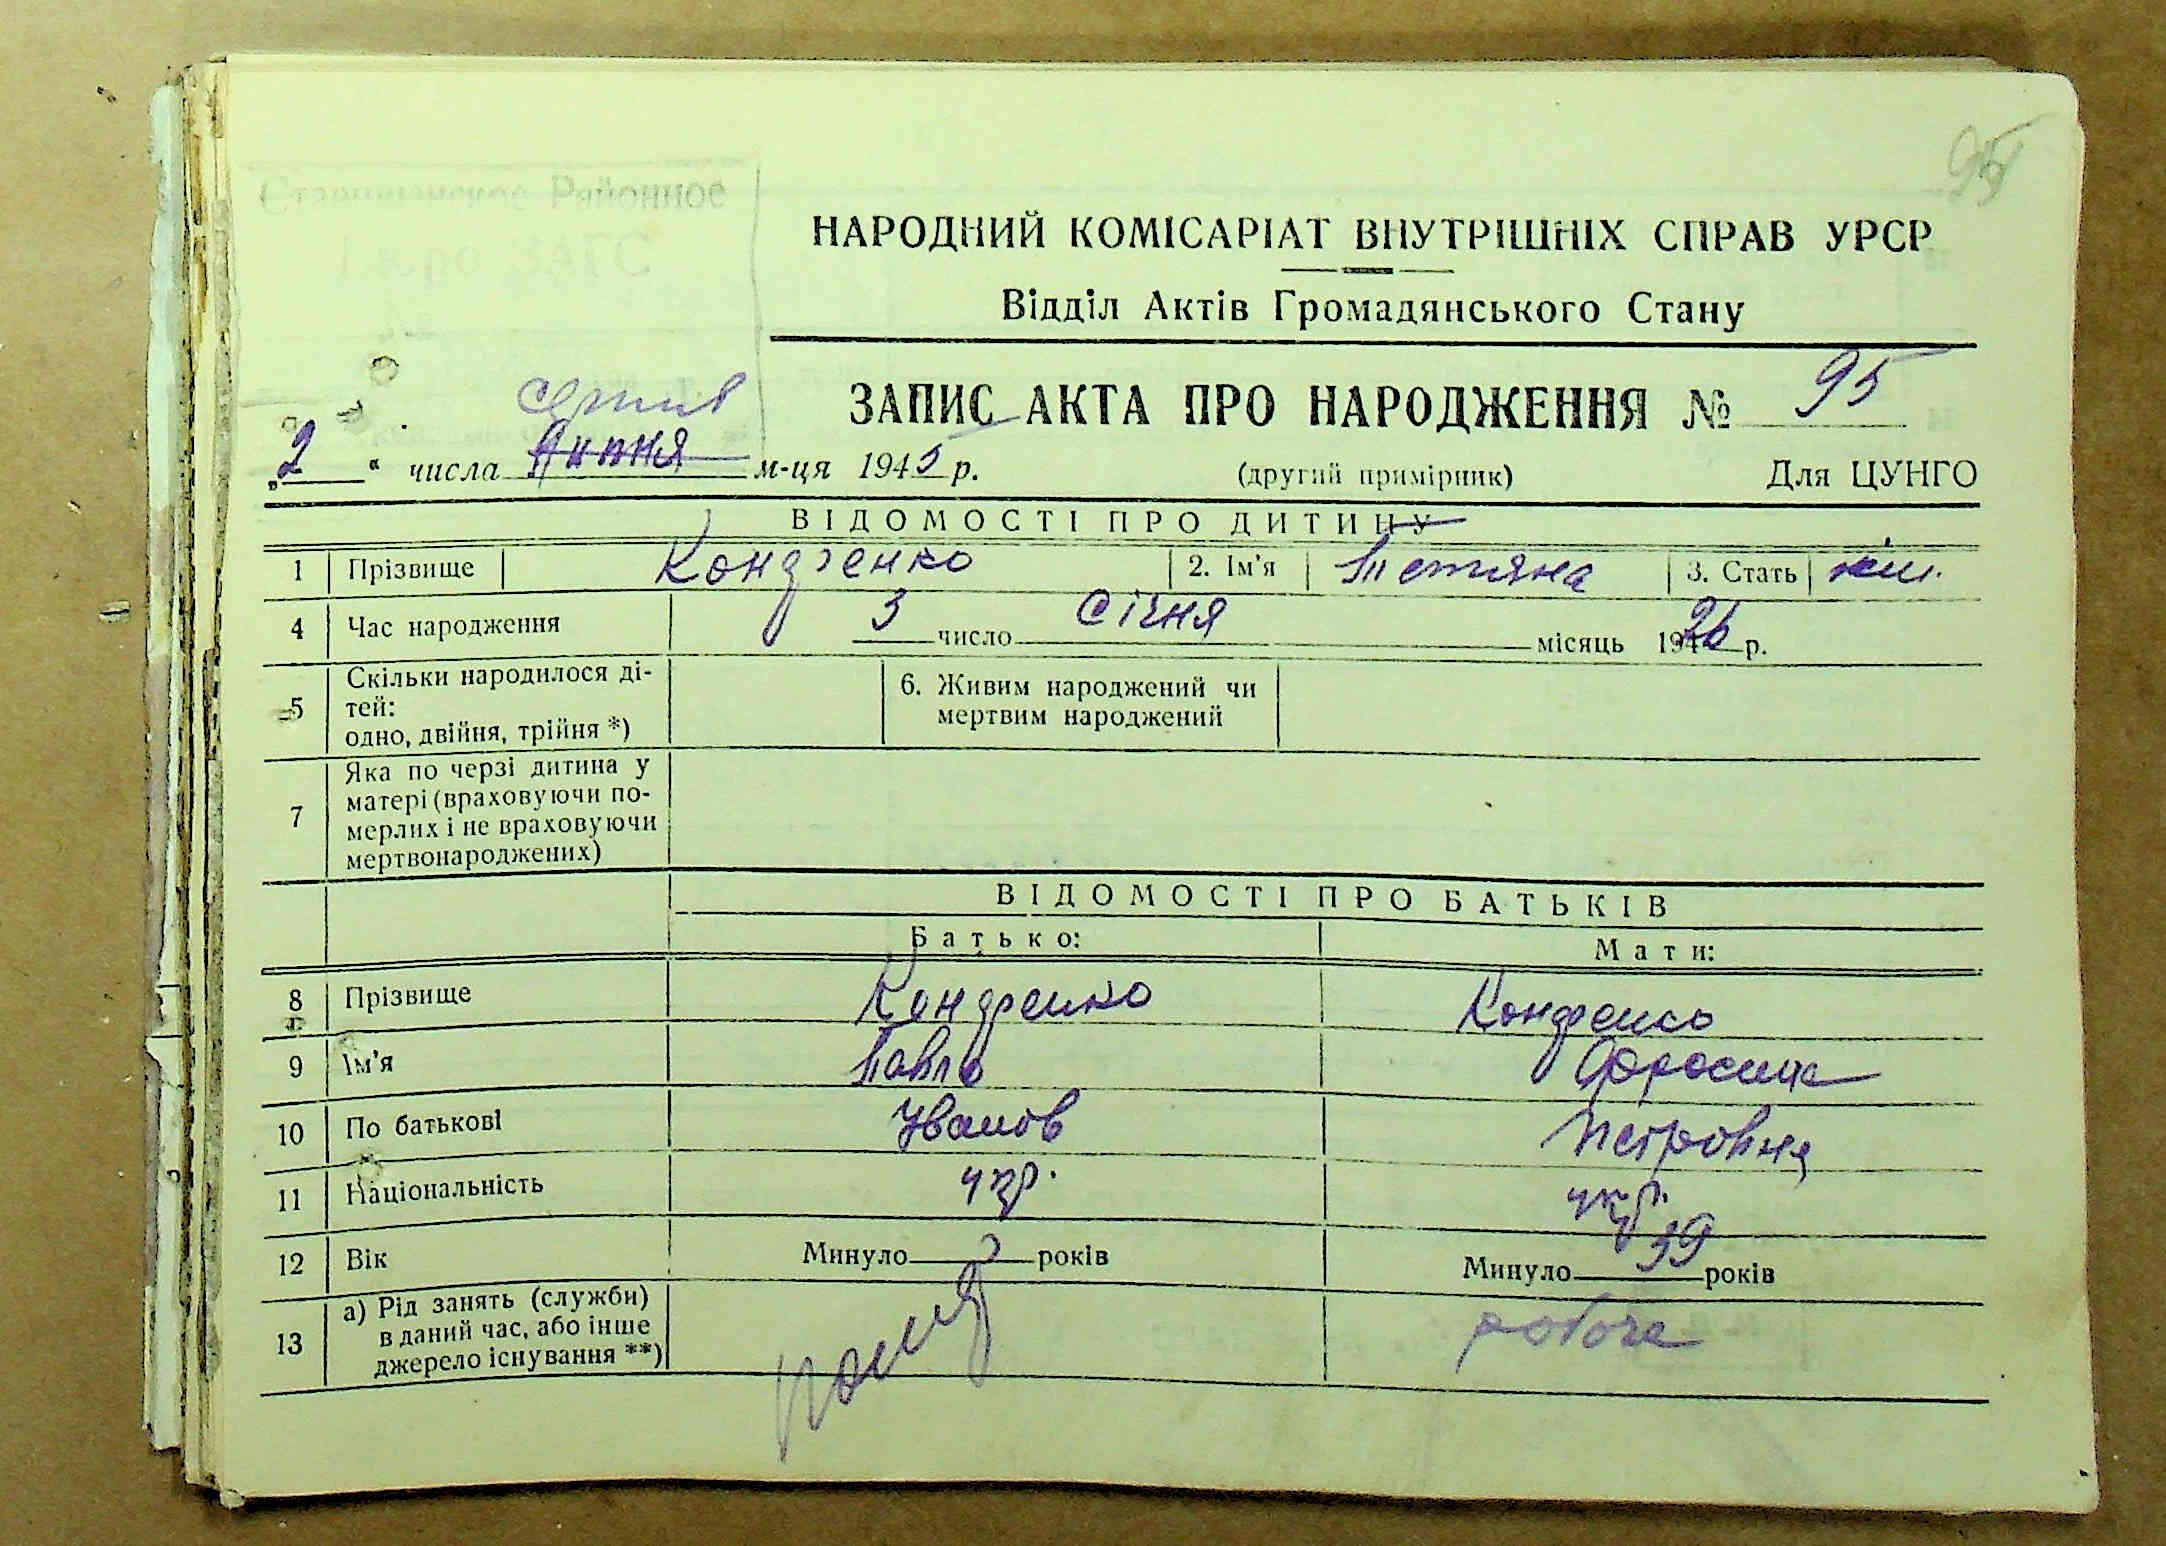 95
НАРОДНИЙ КОМІСАРІАТ ВНУТРІШНІХ СПРАВ УРСР
Відділ Актів Громадянського Стану
ЗАПИС АКТА ПРО НАРОДЖЕННЯ № 95
„2“ числа липня м-ця 1945 р. (другий примірник) Для ЦУНГО
ВІДОМОСТІ ПРО ДИТИНУ
1 Прізвище Кондренко 2. Ім'я Тетяна 3. Стать жін.
4 Час народження 3 число Січня місяць 1926 р.
5 Скільки народилося ді-
тей:
одно, двійня, трійня *)
6. Живим народжений чи
мертвим народжений
7 Яка по черзі дитина у
матері (враховуючи по-
мерлих і не враховуючи
мертвонароджених)
ВІДОМОСТІ ПРО БАТЬКІВ
Батько: Мати:
8 Прізвище Кондренко Кондренко
9 Ім'я Павло Фросина
10 По батькові Иванов Петровна
11 Національність укр. укр.
12 Вік Минуло років Минуло 39 років
13 а) Рід занять (служби)
в даний час, або інше
джерело існування **)
помер робоча